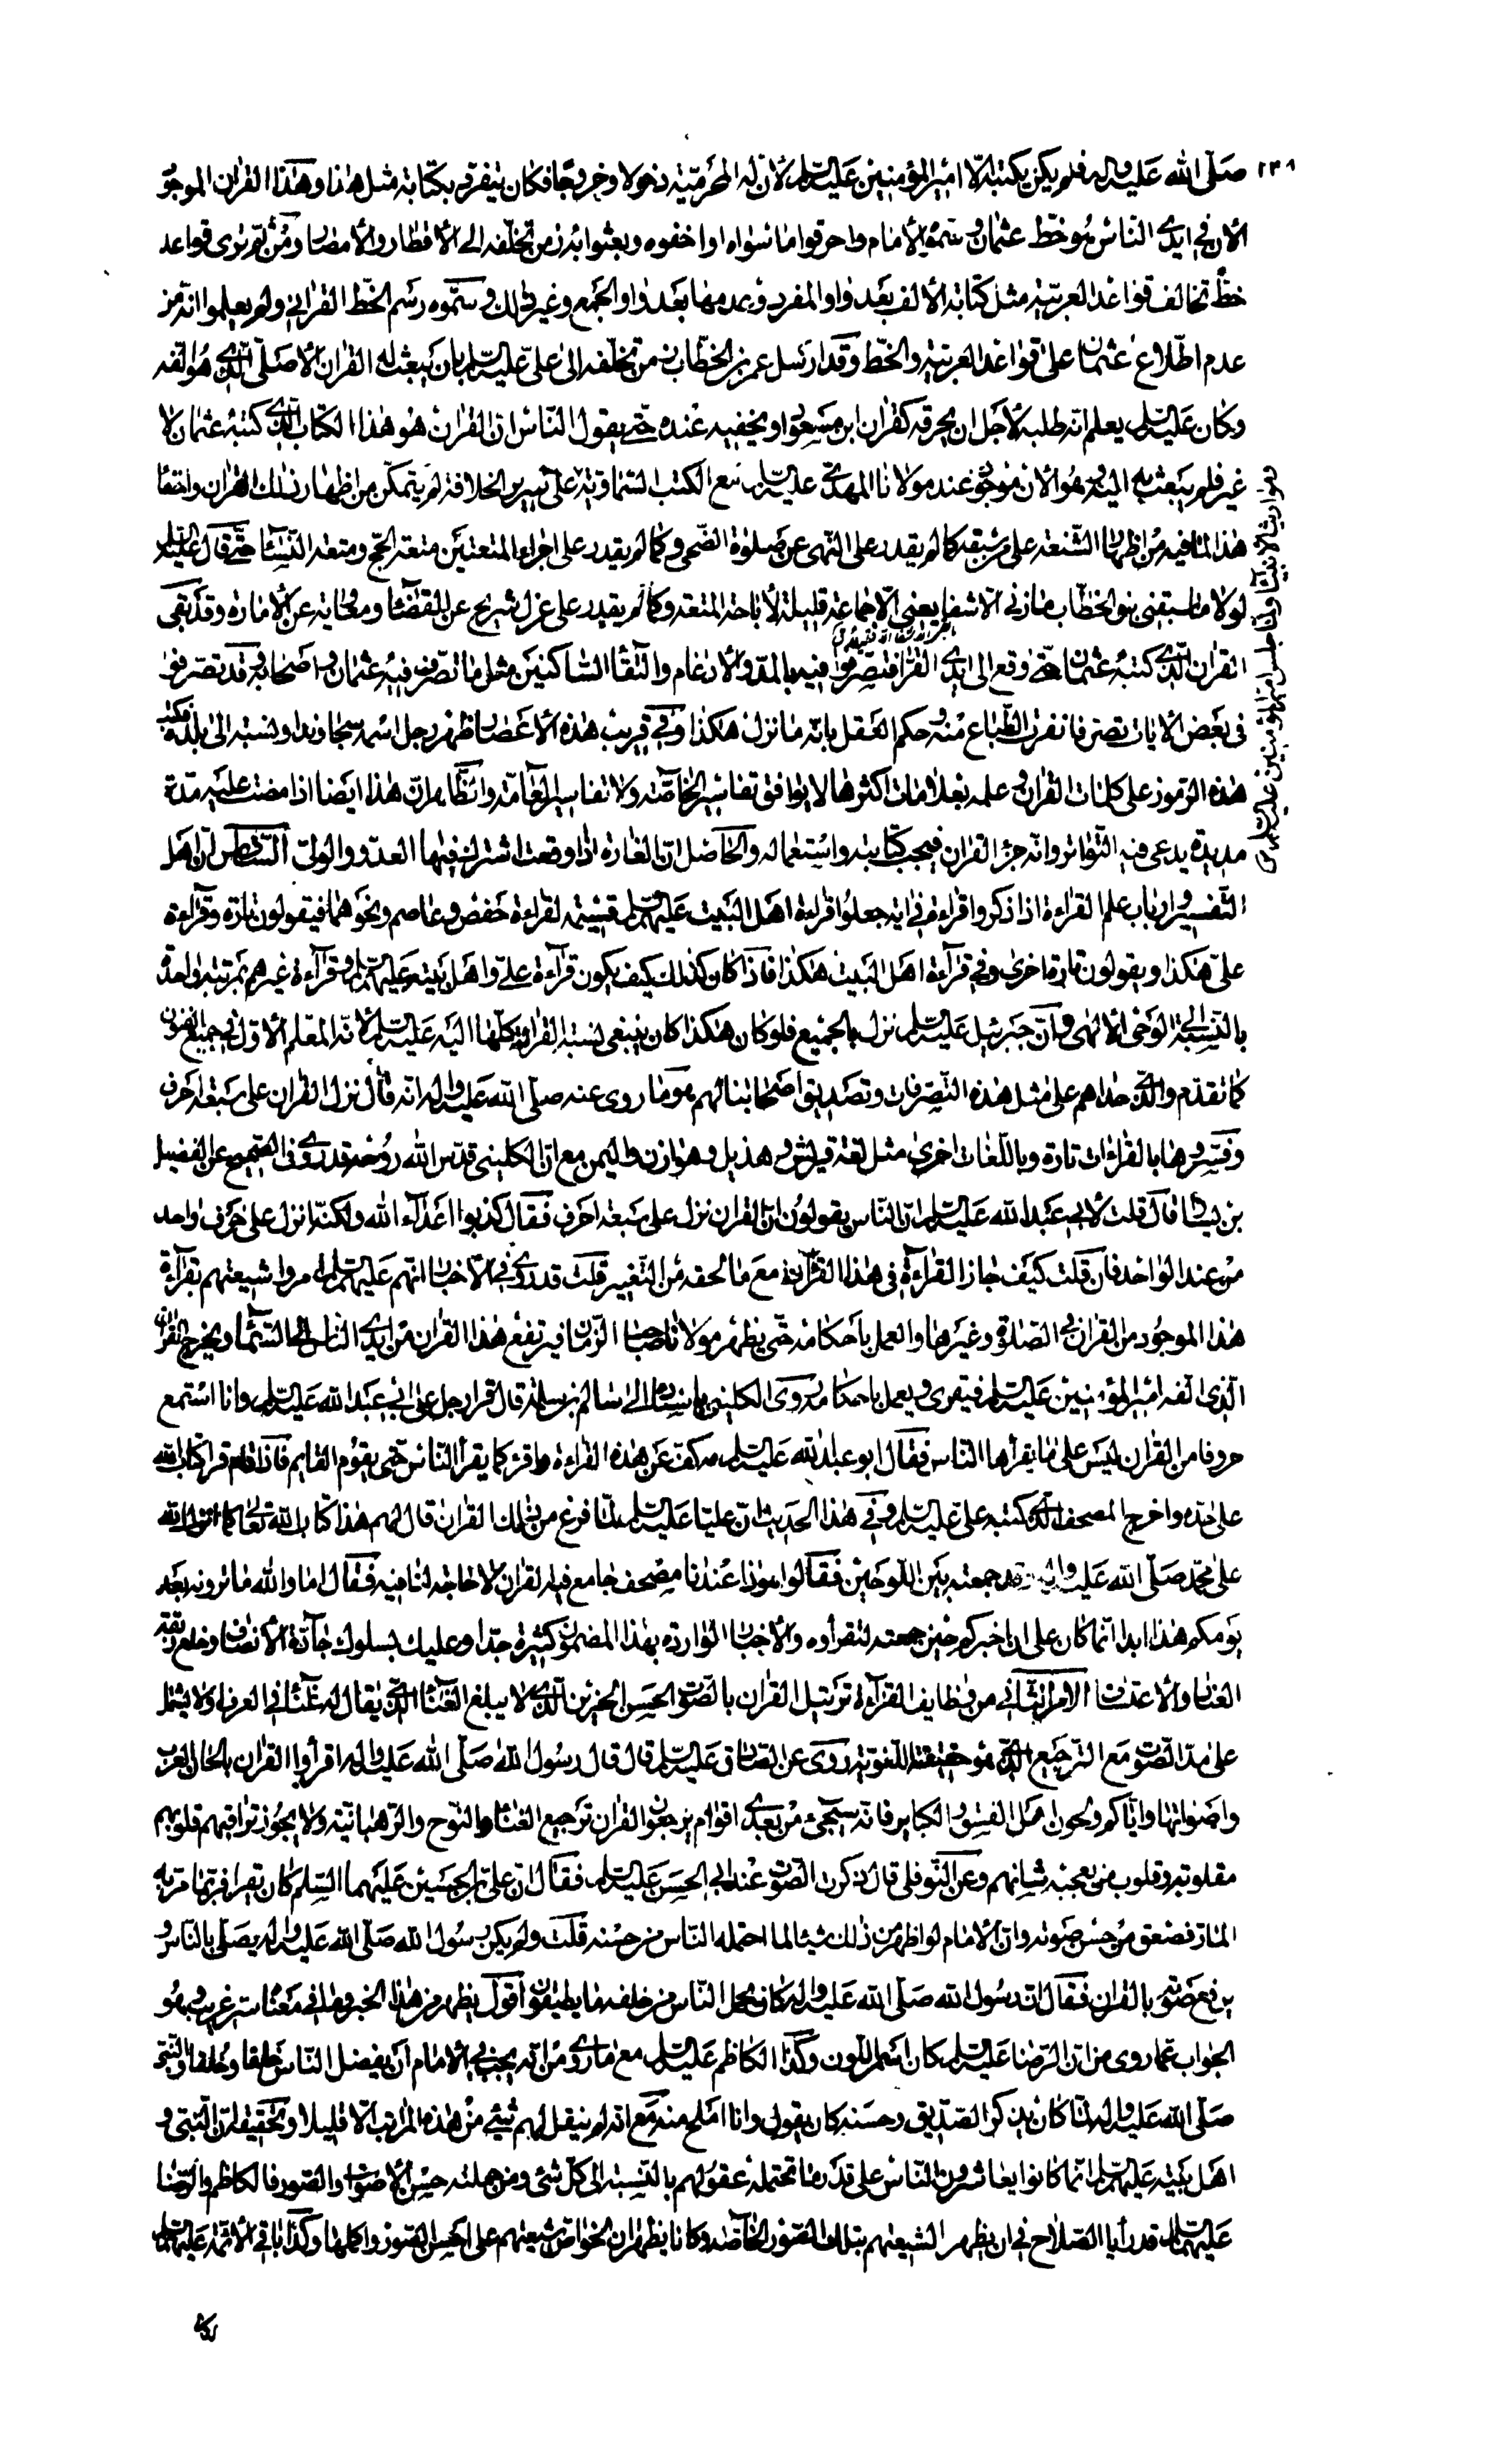 ٢٣٨
صلّى الله عليه واله فلم يكن يكتبه الّا امير المؤمنين عليه السلم لأن له المحرميّة دخولا وخروجا فكان يتفرد بكتابة مثل هذا وهذا القران الموجود
الأن في ايدى الناس هو خطّ عثمان وسموه الإمام واحرقوا ما سواه او اخفوه وبعثوا به زمن تخلّفه الى الأقطار والأمصار ومن ثم ترى قواعد
خطّه تخالف قواعد العربيّة مثل كتابة الألف بعد واو المفرد وعدمها بعد واو الجمع وغير ذلك وسمّوه رسم الخطّ القرانى ولم يعلموا انّه من
عدم اطّلاع عثمان على قواعد العربيّة والخطّ وقد ارسل عمر بن الخطاب زمن تخلّفه الى علىّ عليه السلم بان يبعث له القران الأصلى الذى هو الّفه
وكان عليه السلم يعلم انّه طلبه لأجل ان يحرقه كقران ابن مسعود او يخفيه عنده حتى يقول النّاس انّ القران هو هذا الكتاب الذى كتبه عثمان لا
غير فلم يبعث به اليه وهو الأن موجود عند مولانا المهدى عليه السلم مع الكتب السّماوية ومواريث الأنبياء ولما جلس امير المؤمنين عليه السلم على سرير الخلافة لم يتمكّن من اظهار ذلك القران واخفاء
هذا لما فيه من اظهار الشّنعة على من سبقه كما لم يقدر على النّهى عن صلوة الضّحى وكما لم يقدر على اجراء المتعتين متعة الحجّ ومتعة النّساء حتّى قال عليه السلم
لولا ما سبقنى بنو الخطّاب ما زنى الّا شفا يعنى الّا جماعة قليلة لأباحة المتعة وكما لم يقدر على عزل شريح عن القضاء ومعاوية عن الأمارة وقد بقى
القران الّذى كتبه عثمان حتّى وقع الى ايدى القرّاء فتصرّفوا فيه بالمدّ والأدغام والتقاء السّاكنين مثل ما تصرّف فيه عثمان واصحابه وقد تصرّفوا
فى بعض الأيات تصرفا نفرت الطّباع منه وحكم العقل بانّه ما نزل هكذا وفى قريب هذه الأعصار ظهر رجل اسمه سجاوند او نسبه الى بلده فكتب
هذه الرّموز على كلمات القران وعلمه بعلامات اكثرها لا يوافق تفاسير الخاصّة ولا تفاسير العامّة والظّاهر انّ هذا ايضا اذا مضت عليه مدّة
مديدة يدعى فيه التّواتر وانّه جزء القران فيجب كتابته واستعماله والحاصل انّ الغارة اذا وقعت اشترك فيها العدو والولىّ السّادس انّ اهل
التّفسير وارباب علم القراءة اذا ذكروا قراءة فى اية جعلوا قراءة اهل البيت عليهم السلم قسيمة لقراءة حفص وعاصم ونحوهما فيقولون تارة وقراءة
علىّ هكذا ويقولون تارة اخرى وفى قراءة اهل البيت هكذا فاذا كان كذلك كيف يكون قراءة على واهل بيته عليهم السلم وقراءة غيرهم بمرتبة واحدة
بالنّسبة الى الوحى الإلهى وانّ جبرئيل عليه السلم نزل بالجميع فلو كان هكذا كان ينبغى نسبة القراءة كلّها اليه عليه السلم لأنّه المعلم الأول فى جميع الفنون
كما تقدّم والّذى حداهم على مثل هذه التّصرفات وتصديق اصحابنا لهم هو ما روى عنه صلّى الله عليه واله انّه قال نزل القران على سبعة احرف
وفسّروها بالقراءات تارة وباللّغات اخرى مثل لغة قريش وهذيل وهوازن واليمن مع انّ الكلينى قدّس الله روحه قد روى فى الصّحيح عن الفضيل
بن يسار قال قلت لأبى عبد الله عليه السلم انّ النّاس يقولون انّ القران نزل على سبعة احرف فقال كذبوا اعداء الله ولكنّه انزل على حرف واحد
من عند الواحد فان قلت كيف جاز القراءة فى هذا القران مع ما لحقه من التّغيير قلت قد روى فى الأخبار انّهم عليهم السلم امروا شيعتهم بقراءة
هذا الموجود من القران فى الصّلوة وغيرها والعمل باحكامه حتّى يظهر مولانا صاحب الزّمان فيرتفع هذا القران من ايدى النّاس الى السّماء ويخرج القران
الّذى الّفه امير المؤمنين عليه السلم فيقرى ويعمل باحكامه روى الكلينى باسناده الى سالم بن سلمة قال قرء رجل على ابى عبد الله عليه السلم وانا استمع
حروفا من القران ليس على ما يقرأها النّاس فقال ابو عبد الله عليه السلم مه كفّ عن هذه القراءة واقرء كما يقرأ النّاس حتى يقوم القايم فاذا قام قرء كتاب الله
على حدّه واخرج المصحف الذى كتبه على عليه السلم وفى هذا الحديث انّ عليّا عليه السلم لمّا فرغ من ذلك القران قال لهم هذا كتاب الله تعالى كما انزل الله
على محمّد صلّى الله عليه واله وقد جمعته بين اللوحين فقالوا هوذا عندنا مصحف جامع فيه القران لا حاجة لنا فيه فقال اما والله ما ترونه بعد
يومكم هذا ابدا انّما كان علىّ ان اخبركم حين جمعته لتقرأوه والأخبار الواردة بهذا المضمون كثيرة جدّا وعليك بسلوك جادّة الأنصاف وخلع ربقة
العناد والأعتساف الأمر الثّانى من وظايف القراءة ترتيل القران بالصّوت الحسن الحزين الّذى لا يبلغ الغناء الّذى يقال له غناء فى العرف ولا يشتمل
على مدّ الصّوت مع التّرجيع الّذى هو حقيقته اللّغوية روى عن الصّادق عليه السلم قال قال رسول الله صلّى الله عليه واله اقرأوا القران بالحان العرب
واصواتها وايّاكم ولحون اهل الفسق والكباير فانّه سيجىء من بعدى اقوام يرجعون القران ترجيع الغناء والنّوح والرّهبانيّة ولا يجوز تراقيهم قلوبهم
مقلوبة وقلوب من يعجبه شانهم وعن النّوفلى قال ذكرت الصّوت عند ابى الحسن عليه السلم فقال انّ علىّ بن الحسين عليهما السّلم كان يقرأ فربّما مرّ به
المارّ فصعق من حسن صوته وانّ الأمام لو اظهر من ذلك شيئا لما احتمله النّاس من حسنه قلت ولم يكن رسول الله صلّى الله عليه واله يصلّى بالنّاس و
يرفع صوته بالقران فقال انّ رسول الله صلّى الله عليه واله كان يحمل النّاس من خلفه ما يطيقون اقول يظهر من هذا الخبر وما فى معناه سرّ غريب وهو
الجواب عمّا روى من انّ الرّضا عليه السلم كان اسمر اللون وكذا الكاظم عليه السلم مع ما روى من انّه يجب فى الأمام ان يفضل النّاس خلقا وخلقا والنّبىّ
صلّى الله عليه واله لمّا كان يذكر الصّدّيق وحسنه كان يقول وانا املح منه مع انه لم ينقل لهم شىء من هذه المراتب الّا قليلا وتحقيقه انّ النّبىّ و
اهل بيته عليهم السلم انّما كانوا يعاشرون النّاس على قدر ما تحتمله عقولهم بالنّسبة الى كلّ شىء ومن جملته حسن الأصوات والصّور فالكاظم والرّضا
عليهما السلم قد رأيا الصّلاح فى ان يظهرا لشيعتهم بتلك الصّور الخاصّة وكانا يظهران لخواصّ شيعتهم على احسن الصّور واكملها وكذا باقى الأئمّة عليهم السلم